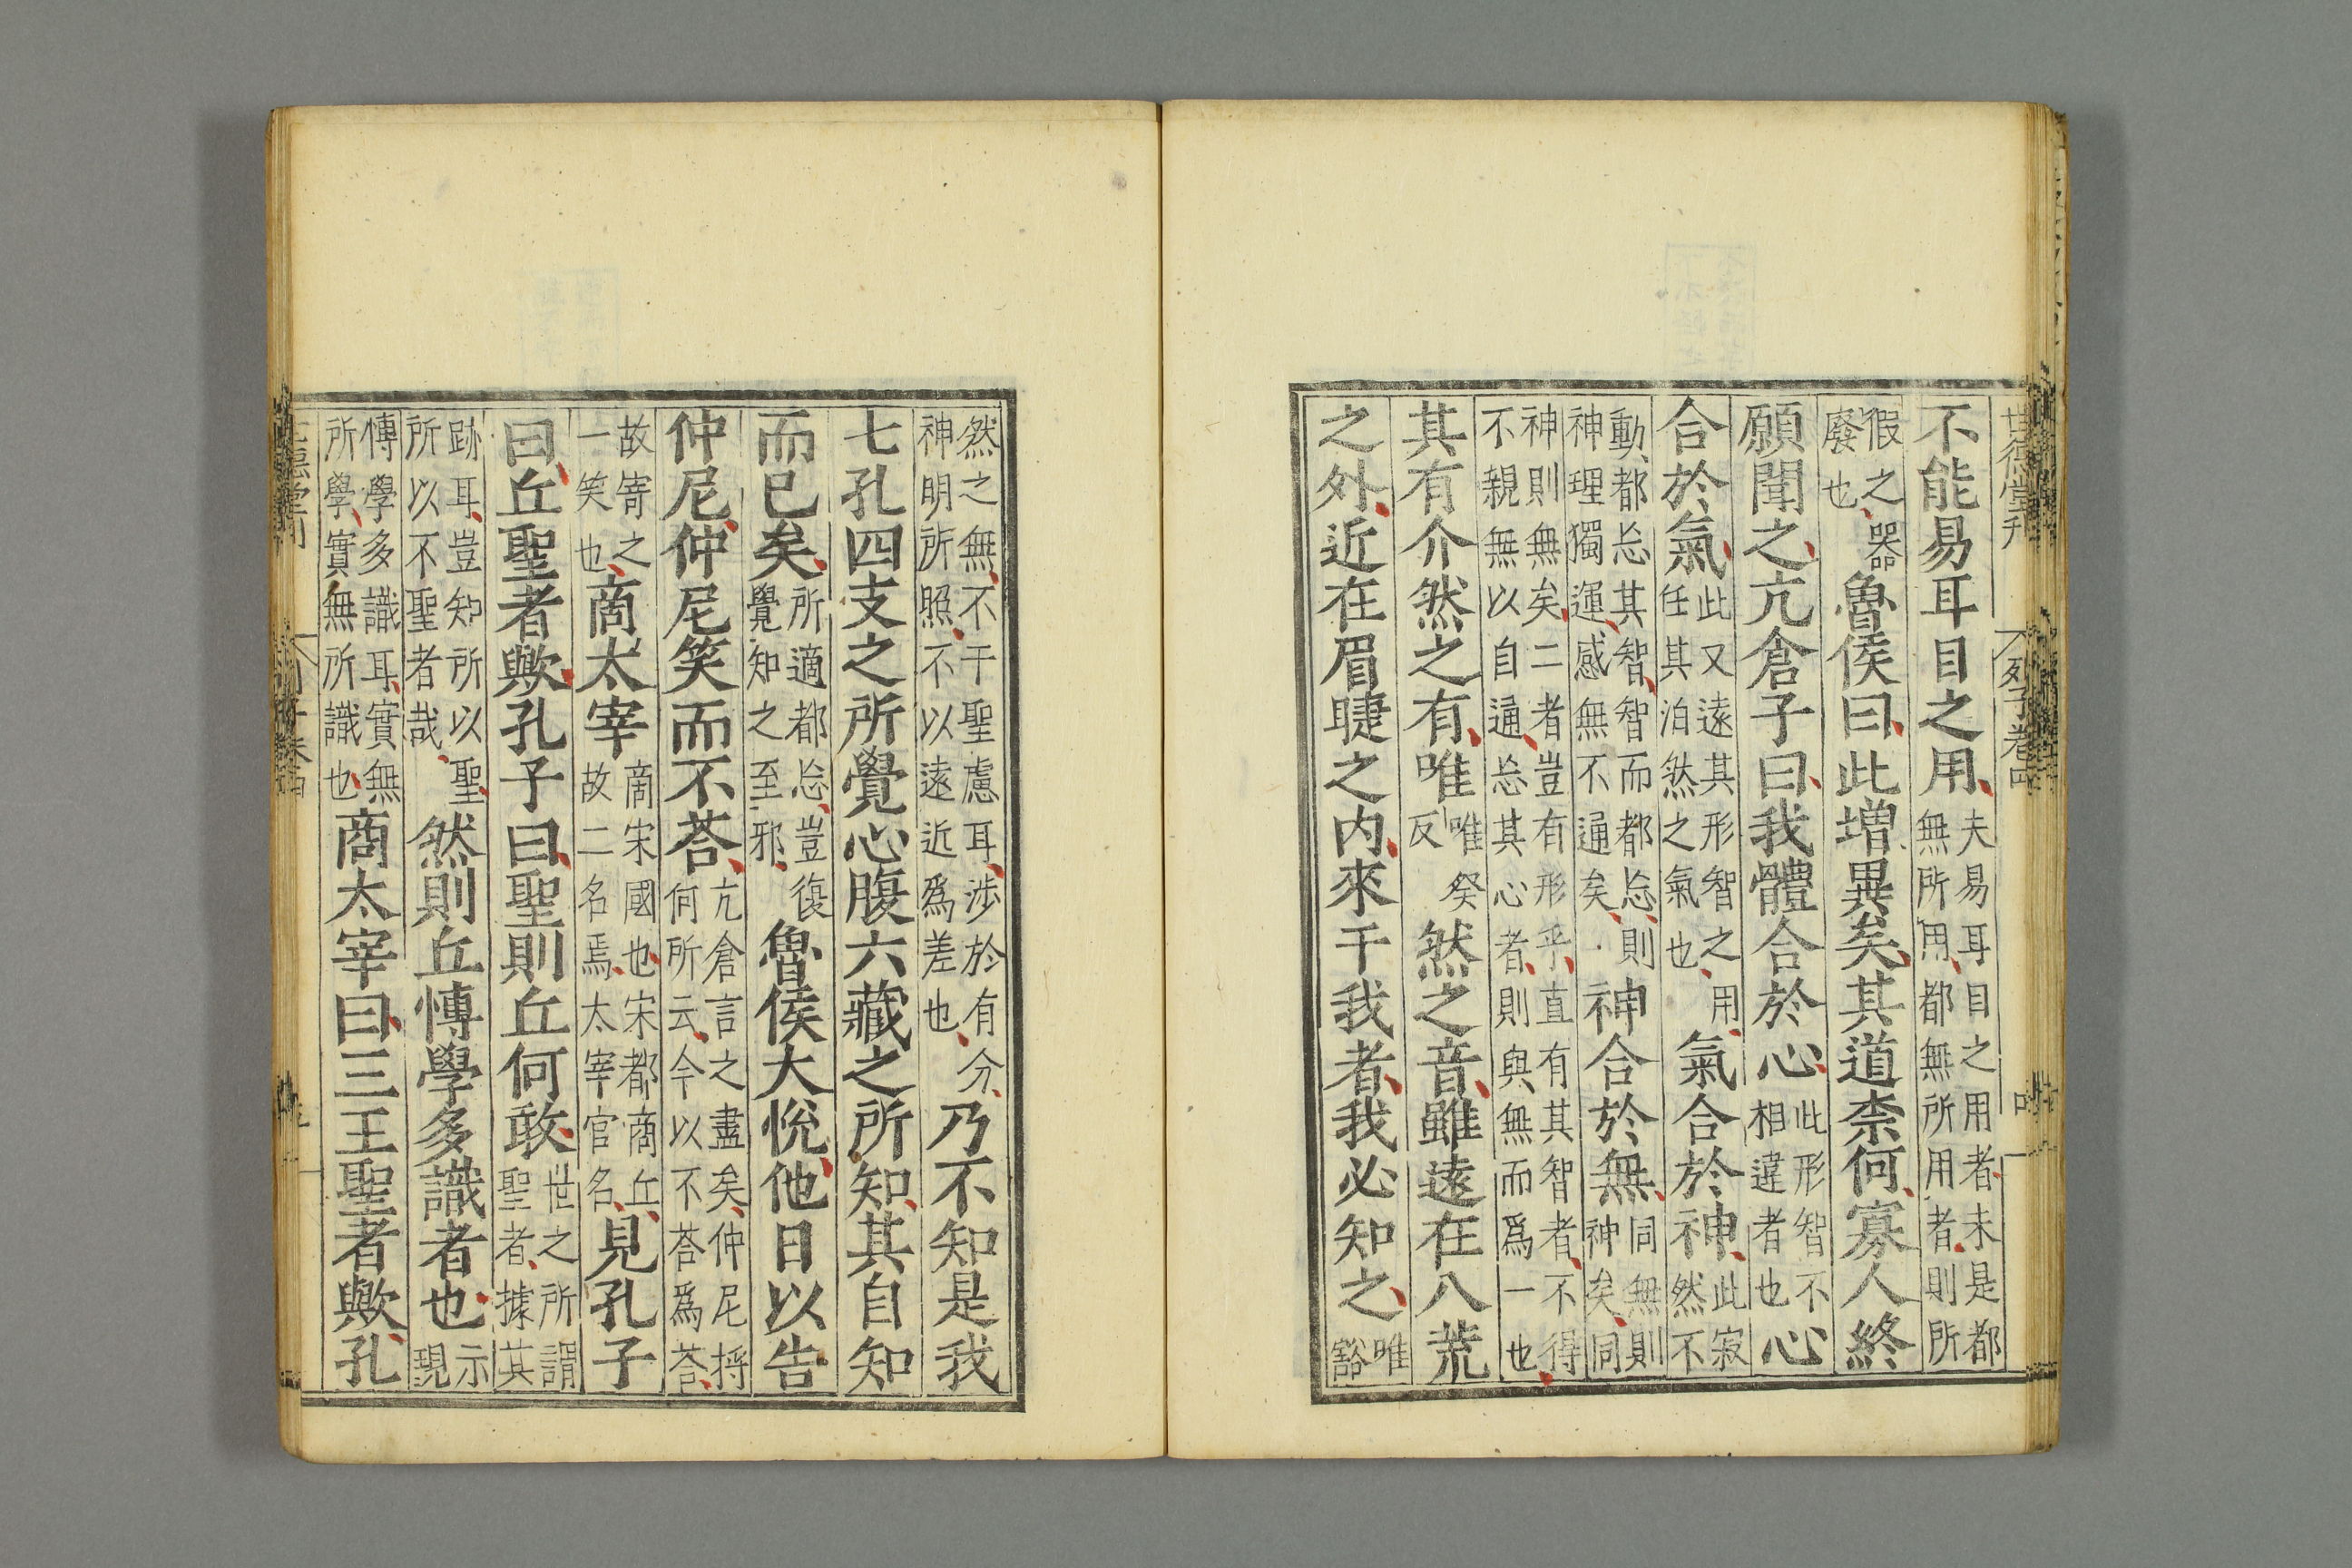 世德堂刊　列子卷四
不能易耳目之用夫易耳目之用者未是都無所用都無所用者則所
假之器廢也魯侯曰此增異矣其道柰何寡人終
願聞之亢倉子曰我體合於心此形智不相違者也心
合於氣此又遠其形智之用任其泊然之氣也氣合於神此寂然不
動都忘其智智而都忘則神理獨運感無不通矣神合於無同無則神矣同
神則無矣二者豈有形乎直有其智者不得不親無以自通忘其心者則與無而爲一也
其有介然之有唯唯癸反然之音雖遠在八荒
之外近在眉睫之內來干我者我必知之唯豁
然之無不干聖慮耳涉於有分神明所照不以遠近爲差也乃不知是我
七孔四支之所覺心腹六藏之所知其自知
而已矣所適都忘豈復覺知之至邪魯侯大悅他日以告
仲尼仲尼笑而不荅亢倉言之盡矣仲尼將何所云今以不荅爲荅
故寄之一笑也商太宰商宋國也宋都商丘故二名焉太宰官名見孔子
曰丘聖者歟孔子曰聖則丘何敢世之所謂聖者據其
跡耳豈知所以聖所以不聖者哉然則丘博學多識者也示現
博學多識耳實無所學實無所識也商太宰曰三王聖者歟孔